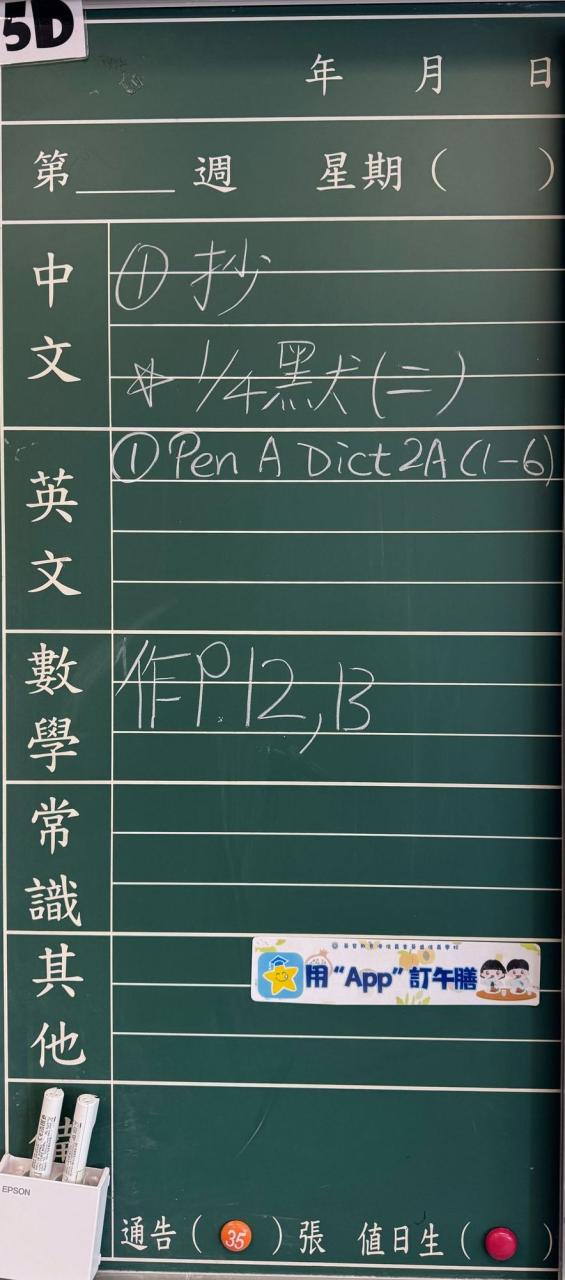 5D
年 月 日
第____週 星期( )
中文
① 抄
☆ 1/4 默(二)
英文
① Pen A Dict 2A (1-6)
數學
作P.12,13
常識
其他
用“App”訂午膳
EPSON
通告( 35 )張 值日生( )